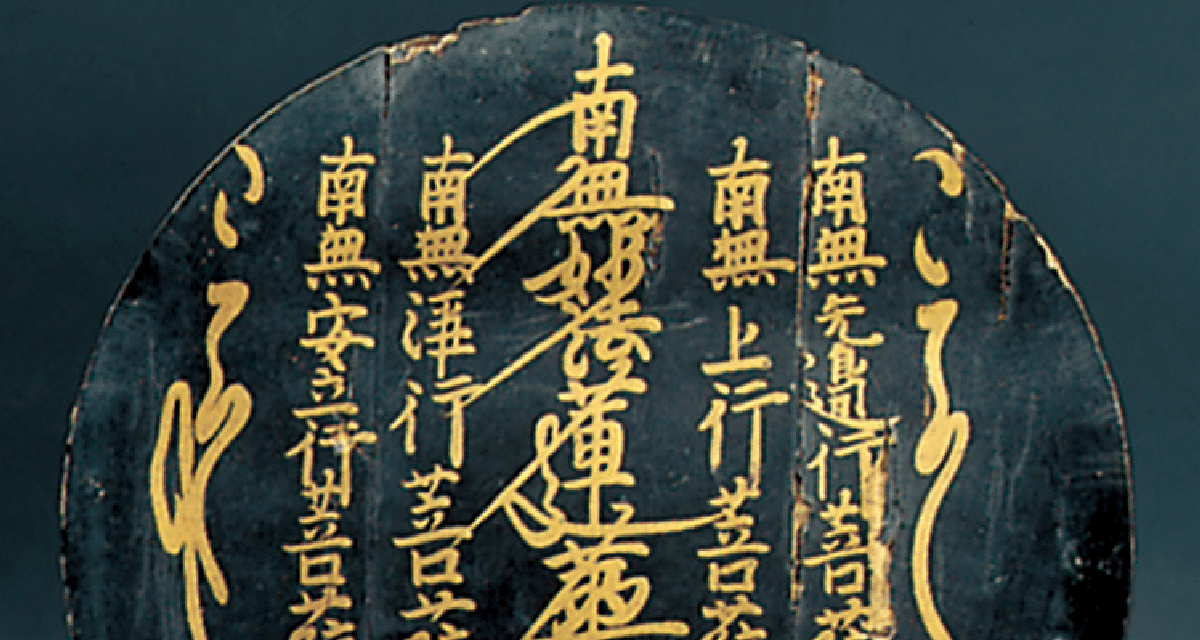 南無无邊行菩薩
南無上行菩薩
南無妙法蓮華
南無淨行菩薩
南無安立行菩薩